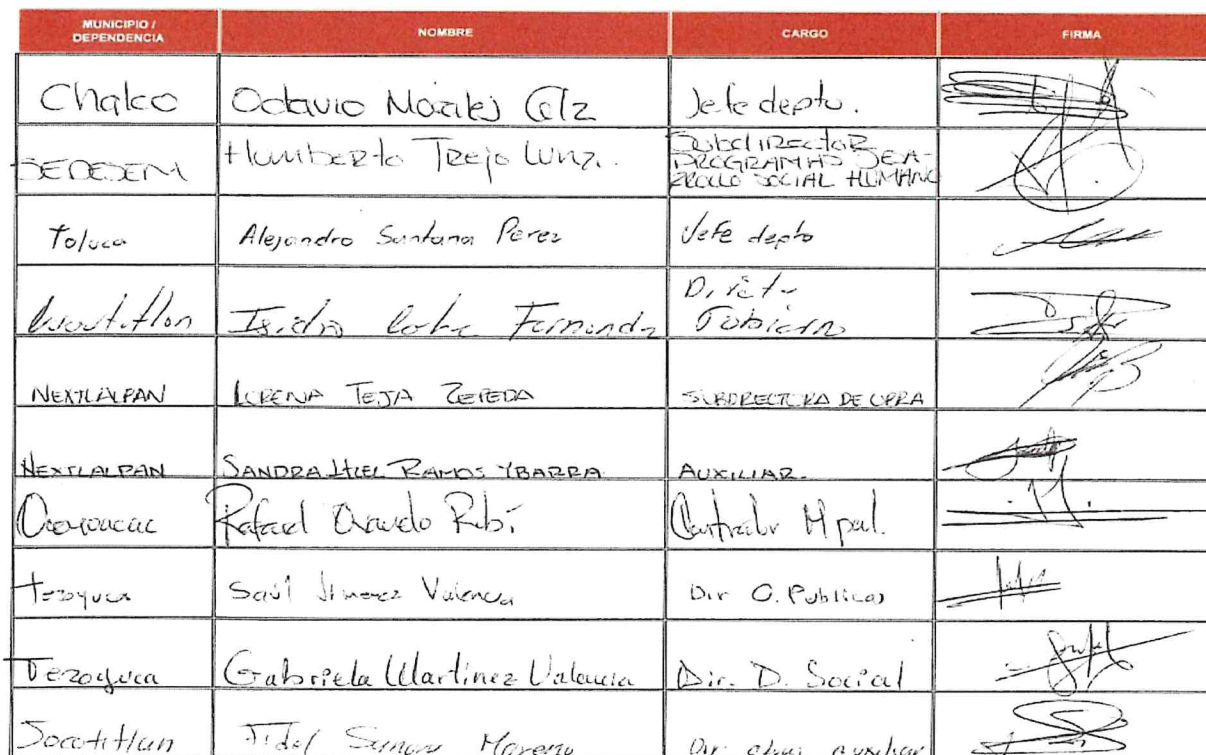 MUNICIPIO / DEPENDENCIA NOMBRE CARGO FIRMA
Chalco Octavio Morales Glz Jefe depto.
SEDESEM Humberto Trejo Luna. Subdirector
PROGRAMAS DESA-
RROLLO SOCIAL HUMANO
Toluca Alejandro Santana Perez Jefe depto
Cuautitlan Isidro Fernandz Gobierno
NEXTLALPAN LORENA TEJA ZEPEDA SUBDIRECTORA DE OBRA
NEXTLALPAN SANDRA RAMOS YBARRA AUXILIAR.
Ocoyoacac Rafael Rubí Contralor Mpal.
Tezoyuca Saúl Jimenez Valencia Dir O. Publicas
Tezoyuca Gabriela Martinez Valencia Dir. D. Social
Jocotitlan Fidel Moreno Dir auxiliar